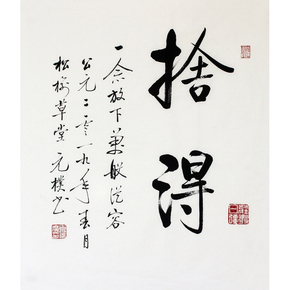 捨得
一念放下萬般從容
公元二零一九年春月
松梅草堂元樸书